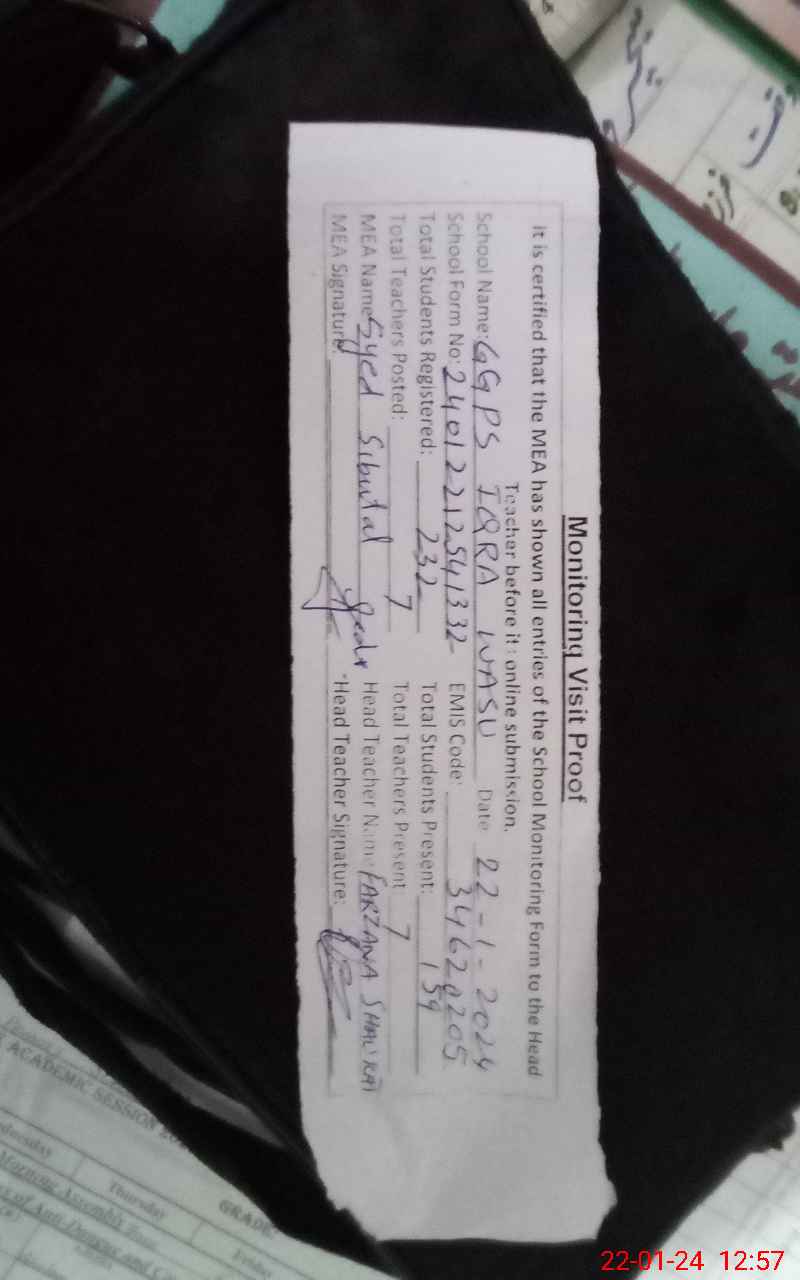 Monitoring Visit Proof
It is certified that the MEA has shown all entries of the School Monitoring Form to the Head
Teacher before it : online submission.
School Name: GGPS IQRA WASU Date 22-1-2024
School Form No: 24012212541332 EMIS Code: 34620205
Total Students Registered: 232 Total Students Present: 159
Total Teachers Posted: 7 Total Teachers Present 7
MEA Name Syed Sibutal Head Teacher Name FARZANA SHAUKAT
MEA Signature: Head Teacher Signature:
ACADEMIC SESSION
Thursday
GRADE
Morning Assembly
22-01-24 12:57